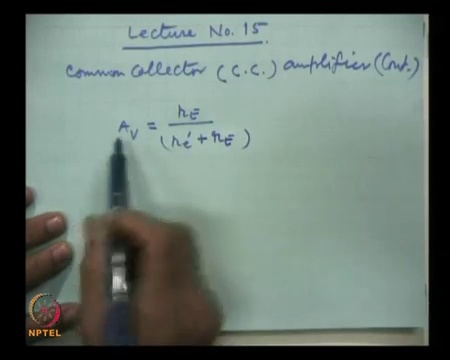 Lecture No. 15.
Common Collector (C.C.) amplifier (Cont.)
A_V = r_E / (r_e' + r_E)
NPTEL